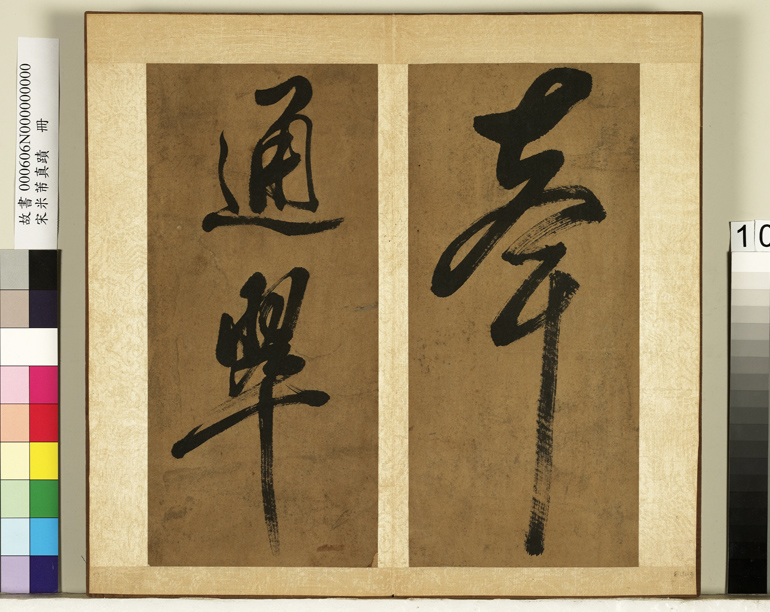 奉
通
故書 000606N000000000
宋米芾真蹟 冊
10